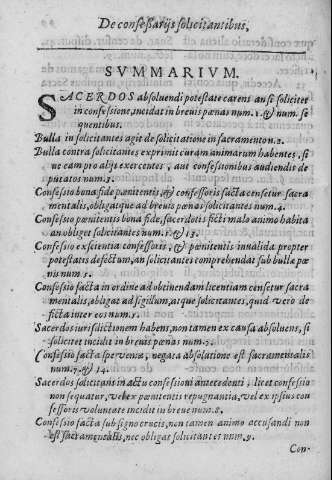 De confessarijs solicitantibus,
SVMMARIVM.
SACERDOS absoluendi potestate carens an si solicitet
in confessione, incidat in breuis pœnas num. 1. & num. se
quentibus.
Bulla in solicitantes agit de solicitatione in sacramento n. 2.
Bulla contra solicitantes exprimit curam animarum habentes, si
ue eam pro alijs exercentes, aut confessionibus audiendis de
putatos num. 3.
Confessio bona fide pœnitentis, & confessoris facta censetur sacra
mentalis, obligatque ad breuis pœnas solicitantes num. 4.
Confessio pœnitentis bona fide, sacerdotis ficti malo animo habita
an obliget solicitantes num. 1. & 13.
Confessio ex scientia confessoris, & pœnitentis inualida propter
potestatis defectum, an solicitantes comprehendat sub bulla pœ
nis num. 5.
Confessio facta in ordine ad obtinendam licentiam censetur sacra
mentalis, obligat ad sigillum, atque solicitantes, quid vero de
ficta inter eos num. 5.
Sacerdos iurisdictionem habens, non tamen ex causa absoluens, si
solicitet incidit in breuis pœnas num. 7.
Confessio facta spe veniæ, negata absolutione est sacramentalis
num. 7. & 14.
Sacerdos solicitans in actu confessioni antecedenti, licet confessio
non sequatur, vel ex pœnitentis repugnantia, vel ex ipsius con
fessoris voluntate incidit in breue num. 8.
Confessio facta sub signo crucis, non tamen animo accusandi non
est sacramentalis, nec obligat solicitantes num. 9.
Con-